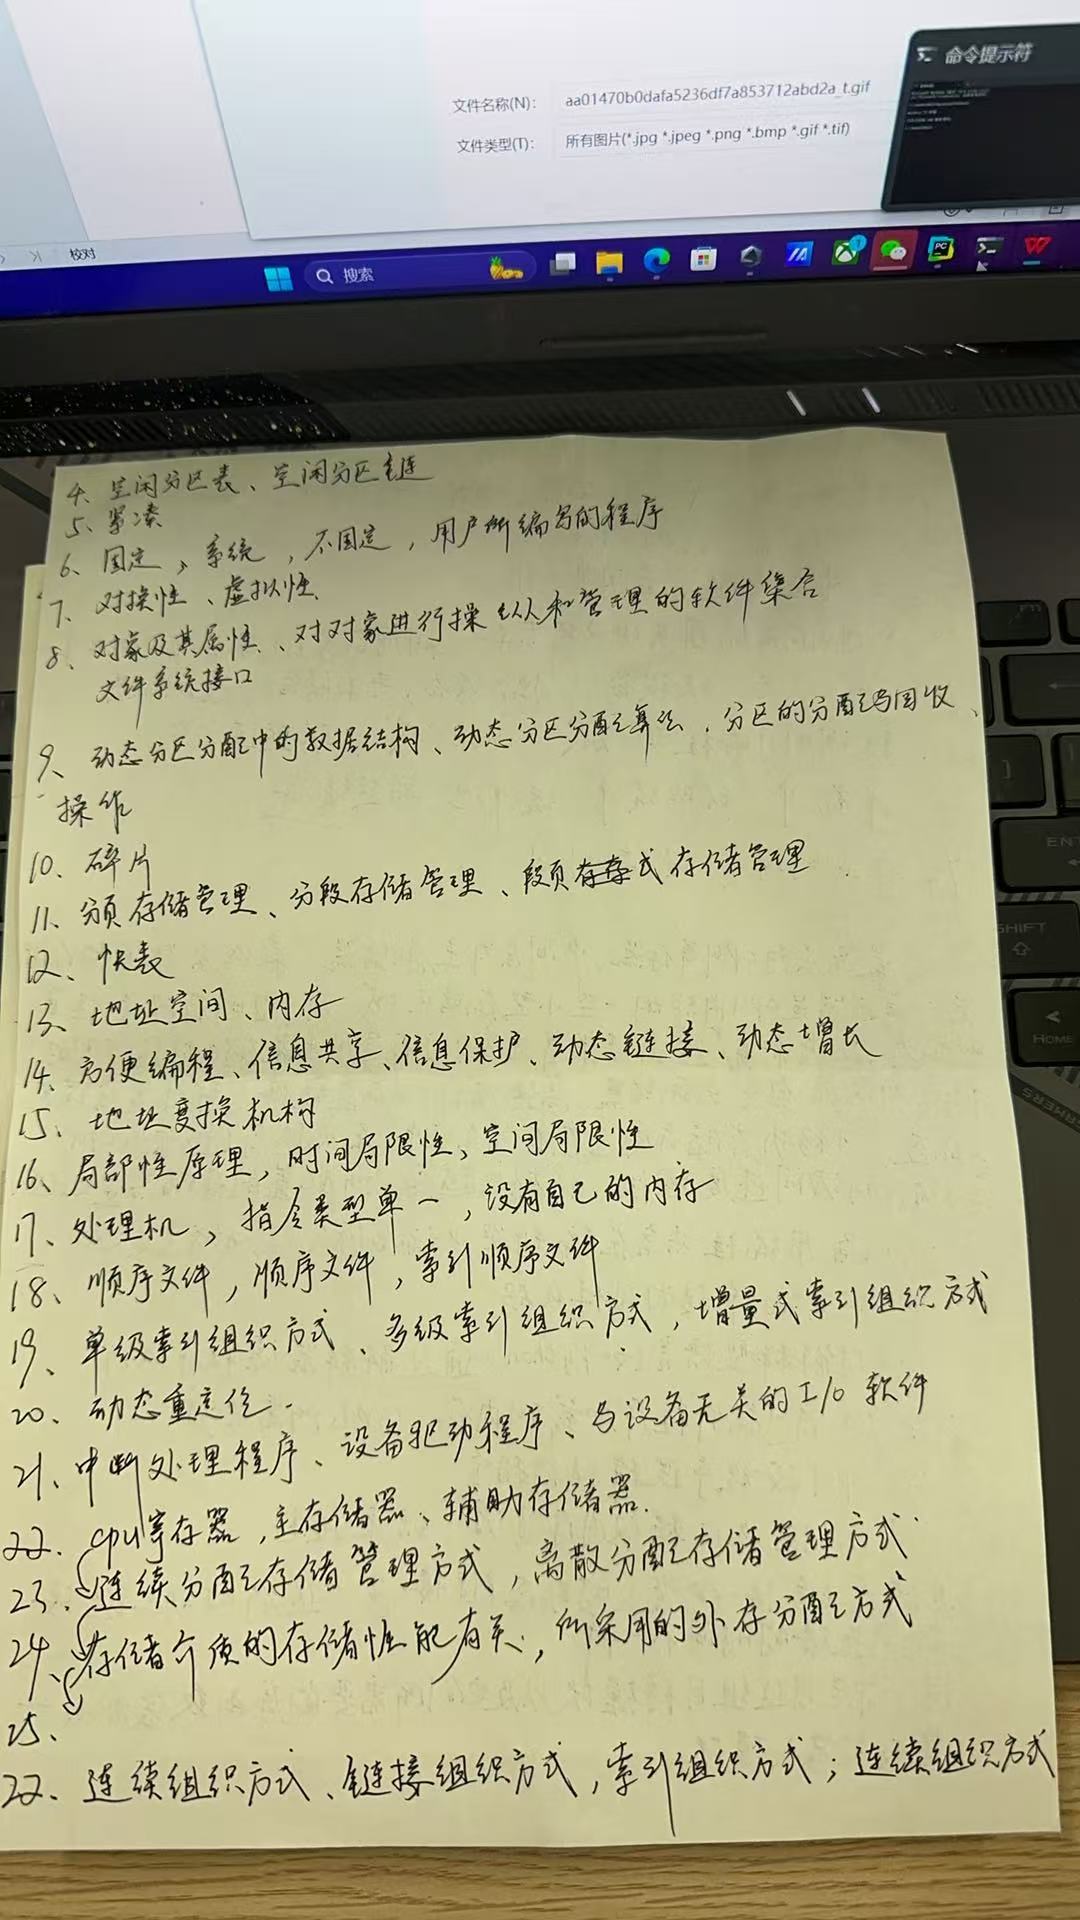 命令提示符
文件名称(N): aa01470b0dafa5236df7a853712abd2a_t.gif
文件类型(T): 所有图片(*.jpg *.jpeg *.png *.bmp *.gif *.tif)
校对
搜索
4、空闲分区表、空闲分区链
5、紧凑
6、固定、系统，不固定，用户所编写的程序
7、对换性、虚拟性
8、对象及其属性、对对象进行操纵和管理的软件集合
文件系统接口
9、动态分区分配中的数据结构、动态分区分配算法、分区的分配与回收、
操作
10、碎片
11、分页存储管理、分段存储管理、段页式存储管理
12、快表
13、地址空间、内存
14、方便编程、信息共享、信息保护、动态链接、动态增长
15、地址变换机构
16、局部性原理，时间局限性、空间局限性
17、处理机，指令类型单一，没有自己的内存
18、顺序文件，顺序文件，索引顺序文件
19、单级索引组织方式、多级索引组织方式，增量式索引组织方式
20、动态重定位.
21、中断处理程序、设备驱动程序、与设备无关的I/O软件
22、cpu寄存器，主存储器、辅助存储器.
23、连续分配存储管理方式，离散分配存储管理方式
24、存储介质的存储性能有关，所采用的外存分配方式
25、
22、连续组织方式、链接组织方式，索引组织方式；连续组织方式
ENT
SHIFT
HOME